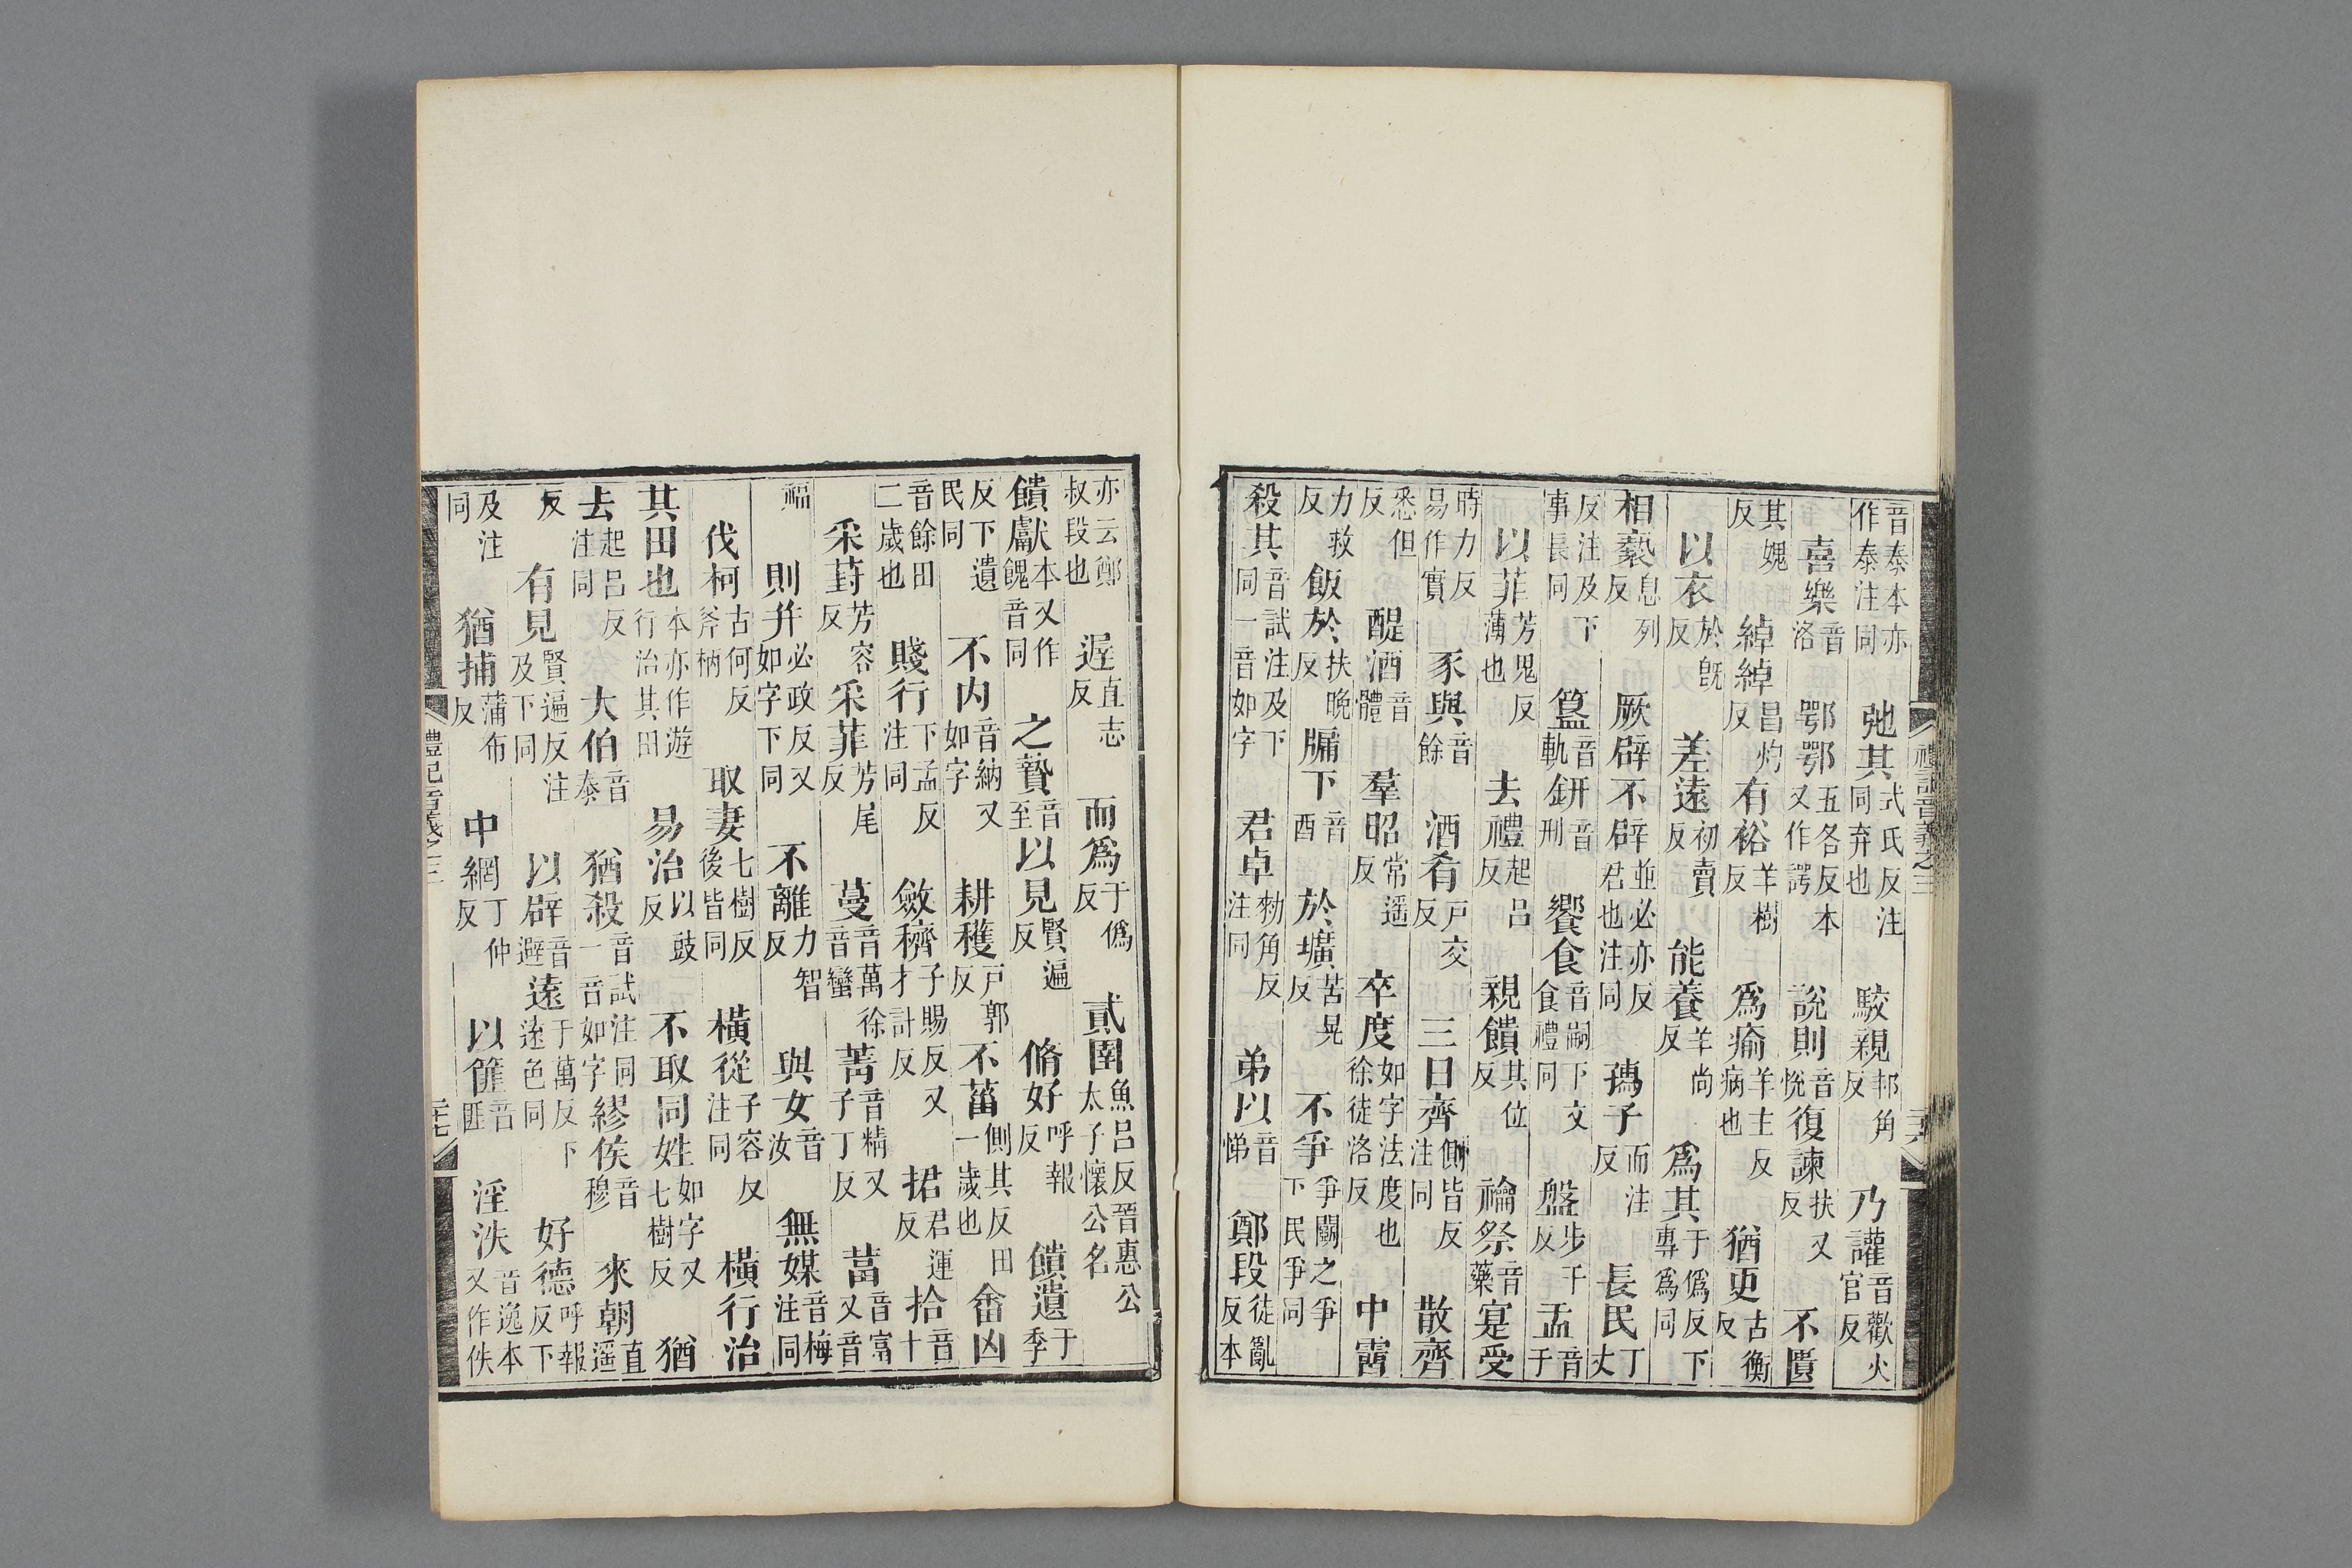 音泰本亦作泰注同　弛其式氏反注同弃也　駮親邦角反　乃讙音歡火官反
喜樂音洛　鄂鄂五各反本又作諤　說則音悅復諫扶又反　不匱
其媿反　綽綽昌灼反　有裕羊樹反　爲瘉羊主反病也　猶更古衡反
以衣於旣反　差遠初賣反　能養羊尚反　爲其于僞反下專爲同
相褻息列反　厥辟不辟並必亦反君也注同　孺子而注反　長民丁丈
反注及下事長同　簋音軌鉶音刑　饗食音嗣下文食禮同　盤步干反　盂音于
以菲芳鬼反薄也　去禮起呂反　親饋其位反　禴祭音藥寔受
時力反易作實　豕與音餘　酒肴戶交反　三日齊側皆反注同　散齊
悉但反　醍酒音體　羣昭常遥反　卒度如字法度也徐徒洛反　中霤
力救反　飯於扶晚反　牖下音酉　於壙苦晃反　不爭爭鬬之爭下民爭同
殺其音試注及下同一音如字　君卓勑角反注同　弟以音悌　鄭段徒亂反本
禮記音義之三
亦云鄭叔段也　遲直志反　而爲于僞反　貳圉魚呂反晉惠公太子懷公名
饋獻本又作餽音同　之贄音至以見賢遍反　脩好呼報反　饋遺于季
反下遺民同　不内音納又如字　耕穫戶郭反　不菑側其反田一歲也　畬凶
音餘田二歲也　賤行下孟反注同　斂穧子賜反又才計反　捃君運反　拾音十
采葑芳容反　采菲芳尾反　蔓音萬徐音蠻　菁音精又子丁反　葍音富又音
福　則并必政反又如字下同　不離力智反　與女音汝　無媒音梅注同
伐柯古何反斧柄　取妻七樹反後皆同　橫從子容反注同　橫行治
其田也本亦作遊行治其田　易治以豉反　不取同姓如字又七樹反　猶
去起呂反注同　大伯音泰　猶殺音試注同一音如字繆侯音穆　來朝直遥
反　有見賢遍反注及下同　以辟音避遠于萬反下遠色同　好德呼報反下
及注同　猶捕蒲布反　中網丁仲反　以篚音匪　淫泆音逸本又作佚
禮記音義之三